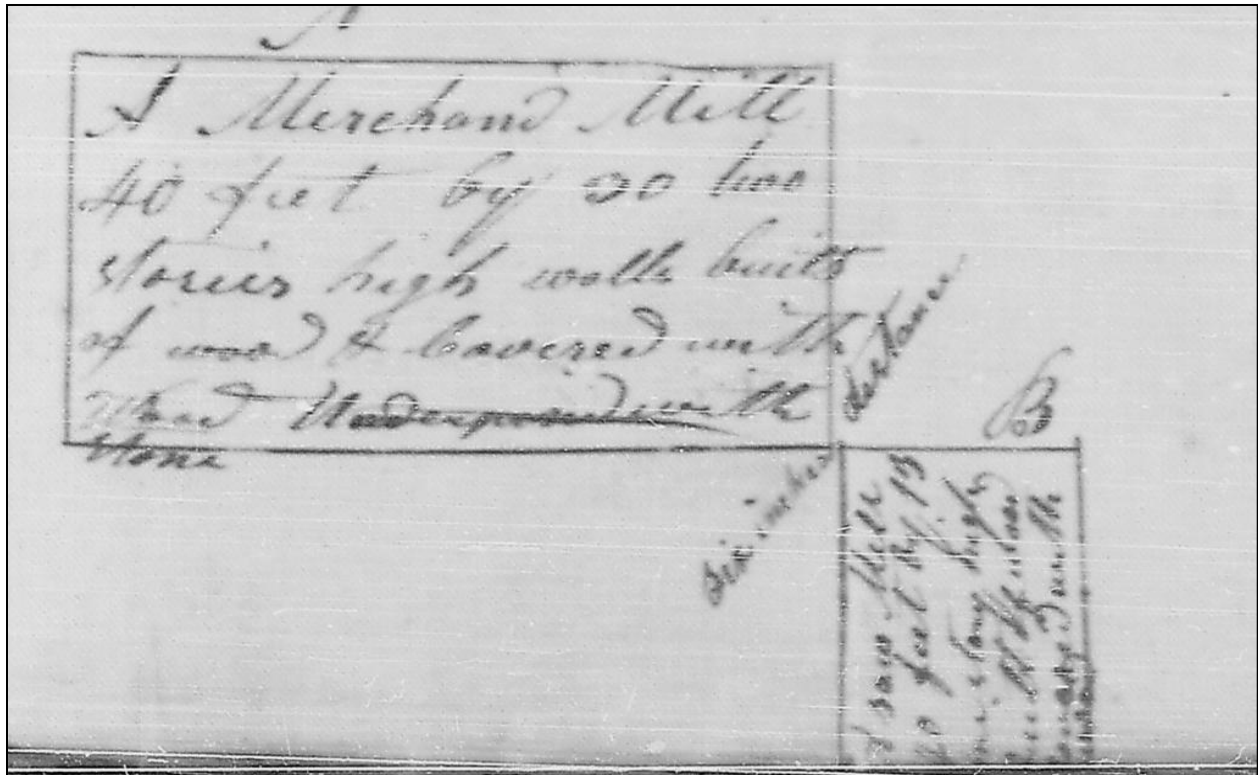 A Merchand Mill
40 feet by 20 two
stories high walls built
of wood & Covered with
Wood Underpined with
stone
six inches distance
B
A saw Mill
feet by 13
one story high
built of wood
covered with